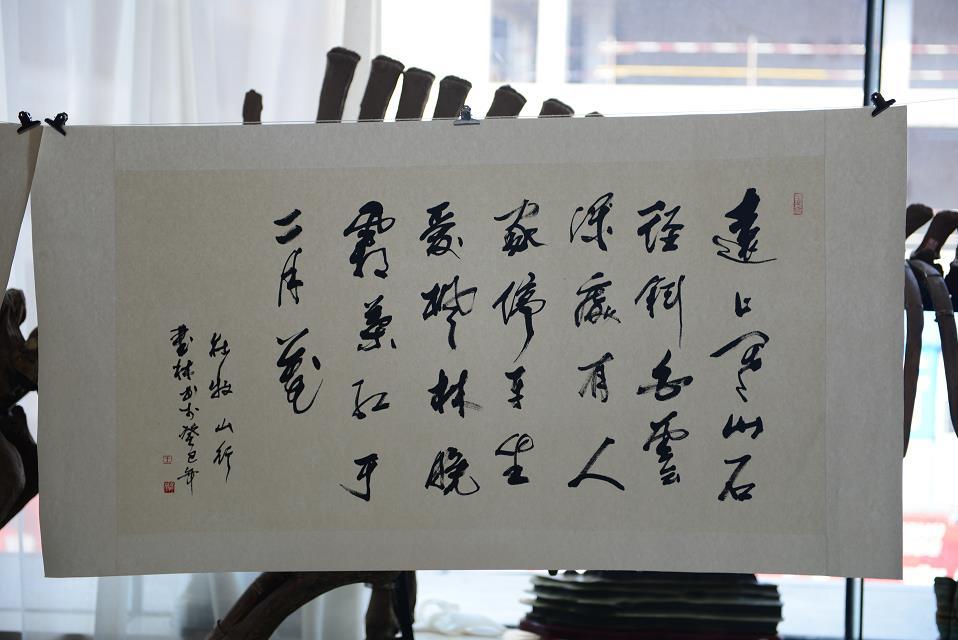 遠上寒山石
徑斜白雲
深處有人
家停車坐
愛楓林晚
霜葉紅于
二月花
杜牧山行
書林书于癸巳年